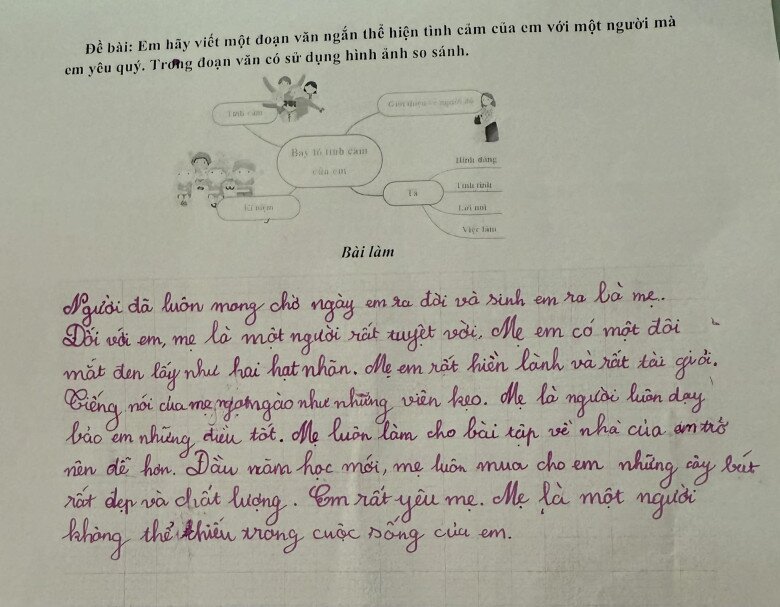 Đề bài: Em hãy viết một đoạn văn ngắn thể hiện tình cảm của em với một người mà
em yêu quý. Trong đoạn văn có sử dụng hình ảnh so sánh.
Tình cảm
Giới thiệu về người đó
Bày tỏ tình cảm
của em
Hình dáng
Tả
Tính tình
Lời nói
Kỉ niệm
Việc làm
Bài làm
Người đã luôn mong chờ ngày em ra đời và sinh em ra là mẹ.
Đối với em, mẹ là một người rất tuyệt vời. Mẹ em có một đôi
mắt đen láy như hai hạt nhãn. Mẹ em rất hiền lành và rất tài giỏi.
Tiếng nói của mẹ ngọt ngào như những viên kẹo. Mẹ là người luôn dạy
bảo em những điều tốt. Mẹ luôn làm cho bài tập về nhà của em trở
nên dễ hơn. Đầu năm học mới, mẹ luôn mua cho em những cây bút
rất đẹp và chất lượng. Em rất yêu mẹ. Mẹ là một người
không thể thiếu trong cuộc sống của em.